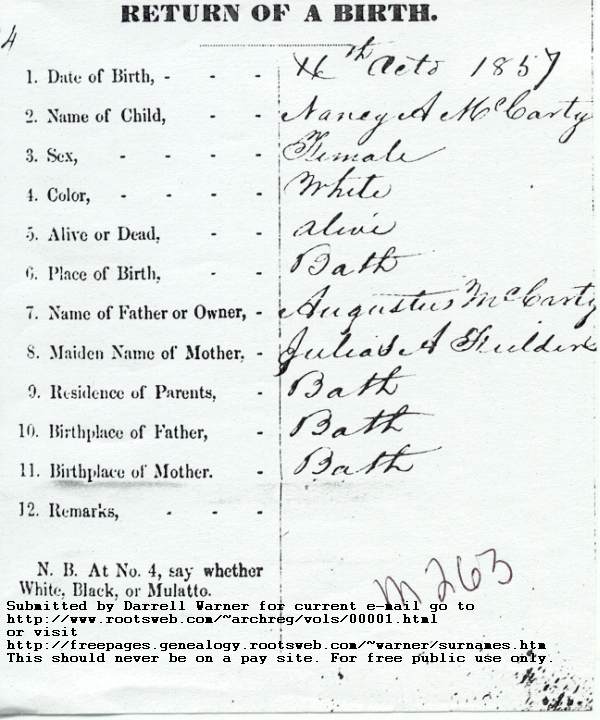 RETURN OF A BIRTH.
4
1. Date of Birth, - - - th Octo 1857
2. Name of Child, - - Nancy A McCarty
3. Sex, - - - - Female
4. Color, - - - White
5. Alive or Dead, - - alive
6. Place of Birth, - - Bath
7. Name of Father or Owner, - Augustus McCarty
8. Maiden Name of Mother, - A
9. Residence of Parents, - Bath
10. Birthplace of Father, - Bath
11. Birthplace of Mother. - Bath
12. Remarks, - - -
N. B. At No. 4, say whether
White, Black, or Mulatto.
m 263
Submitted by Darrell Warner for current e-mail go to
http://www.rootsweb.com/~archreg/vols/00001.html
or visit
http://freepages.genealogy.rootsweb.com/~warner/surnames.htm
This should never be on a pay site. For free public use only.